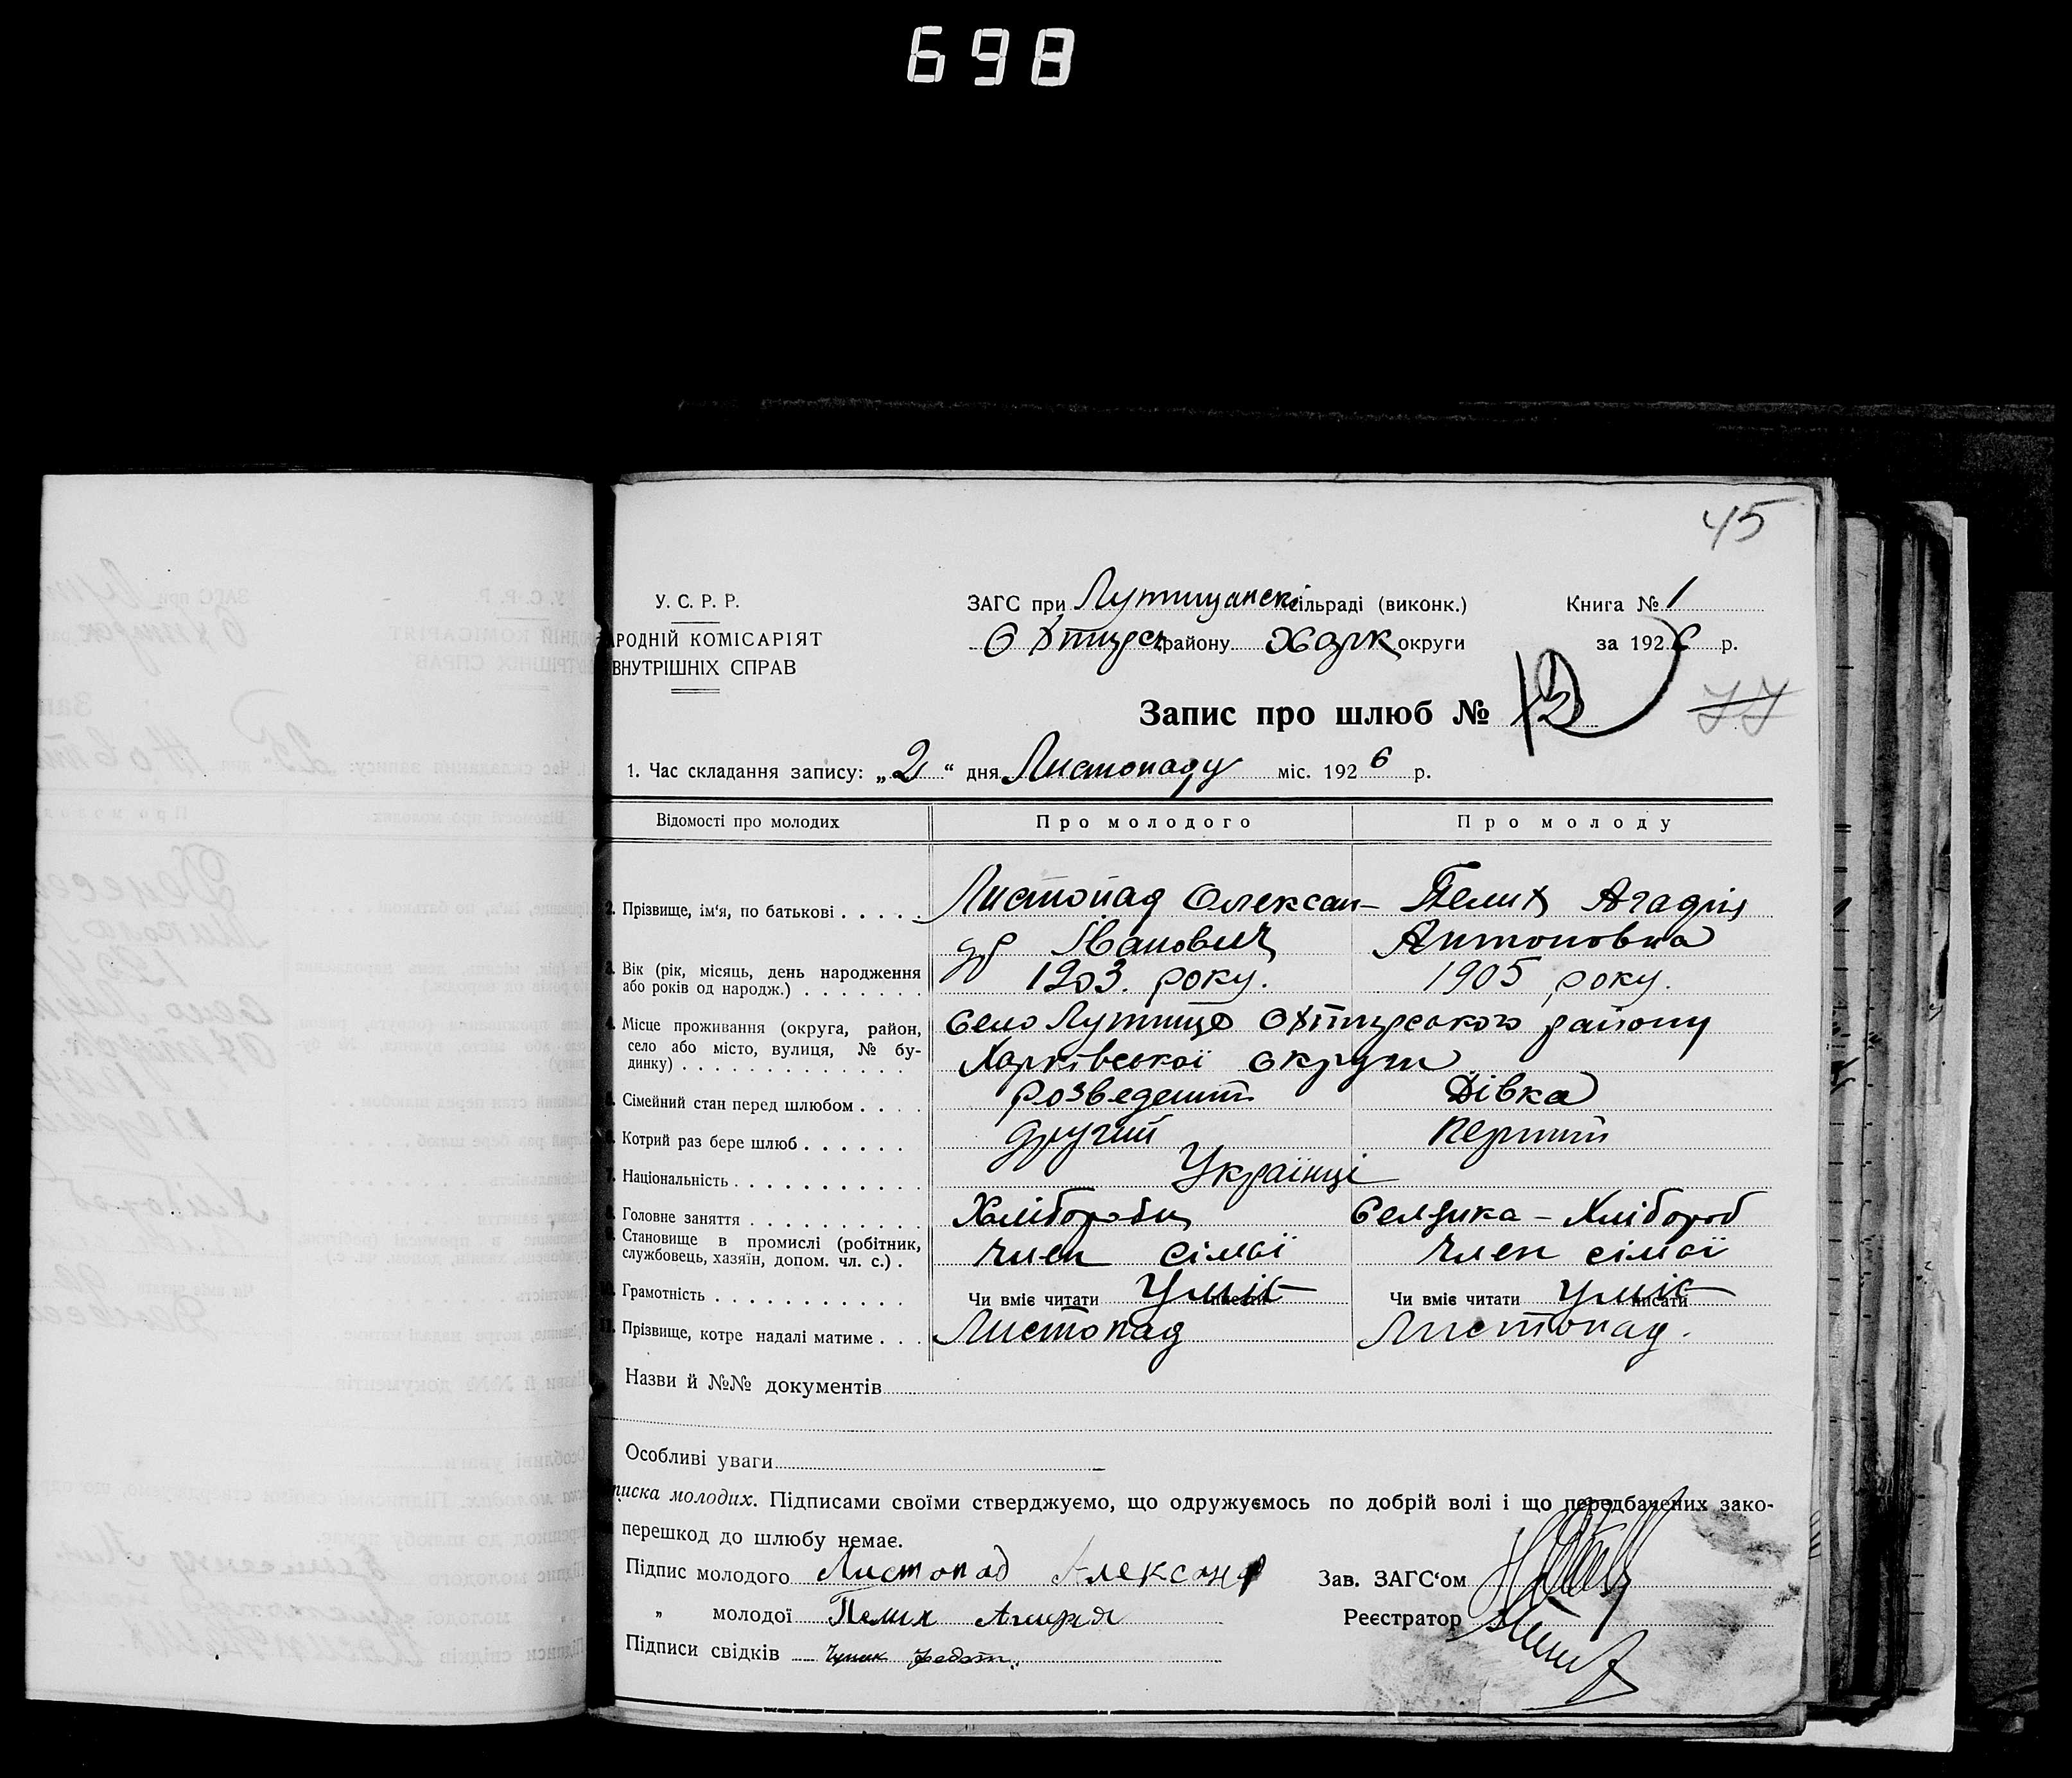 698
45
У. С. Р. Р.
РОДНІЙ КОМІСАРІЯТ
ВНУТРІШНІХ СПРАВ
ЗАГС при Лутищанскі сільраді (виконк.)
Охтирськ району Харк округи
Книга № 1
за 1926 р.
Запис про шлюб № 12
77
1. Час складання запису: „2“ дня Листопаду міс. 1926 р.
Відомості про молодих Про молодого Про молоду
2. Прізвище, ім'я, по батькові Листопад Олексан- Пелих Агафія
др Іванович Антоновна
Вік (рік, місяць, день народження або років од народж.) 1903. року. 1905 року.
4. Місце проживання (округа, район, Село Лутище Охтирського району
село або місто, вулиця, № бу-
динку) Харківської округи
Сімейний стан перед шлюбом розведений Дівка
Котрий раз бере шлюб другий перший
7. Національність Українці
Головне заняття Хліборобец Селянка - Хлібороб
Становище в промислі (робітник,
службовець, хазяїн, допом. чл. с.) Член сімї Член сімї
Грамотність Чи вміє читати писати Уміє Чи вміє читати писати Уміє
11. Прізвище, котре надалі матиме Листопад Листопад.
Назви й №№ документів
Особливі уваги
писка молодих. Підписами своїми стверджуємо, що одружуємось по добрій волі і що передбачених зако-
перешкод до шлюбу немає.
Підпис молодого Листопад Александр
Зав. ЗАГС'ом
„ молодої Пелих
Реєстратор
Підписи свідків